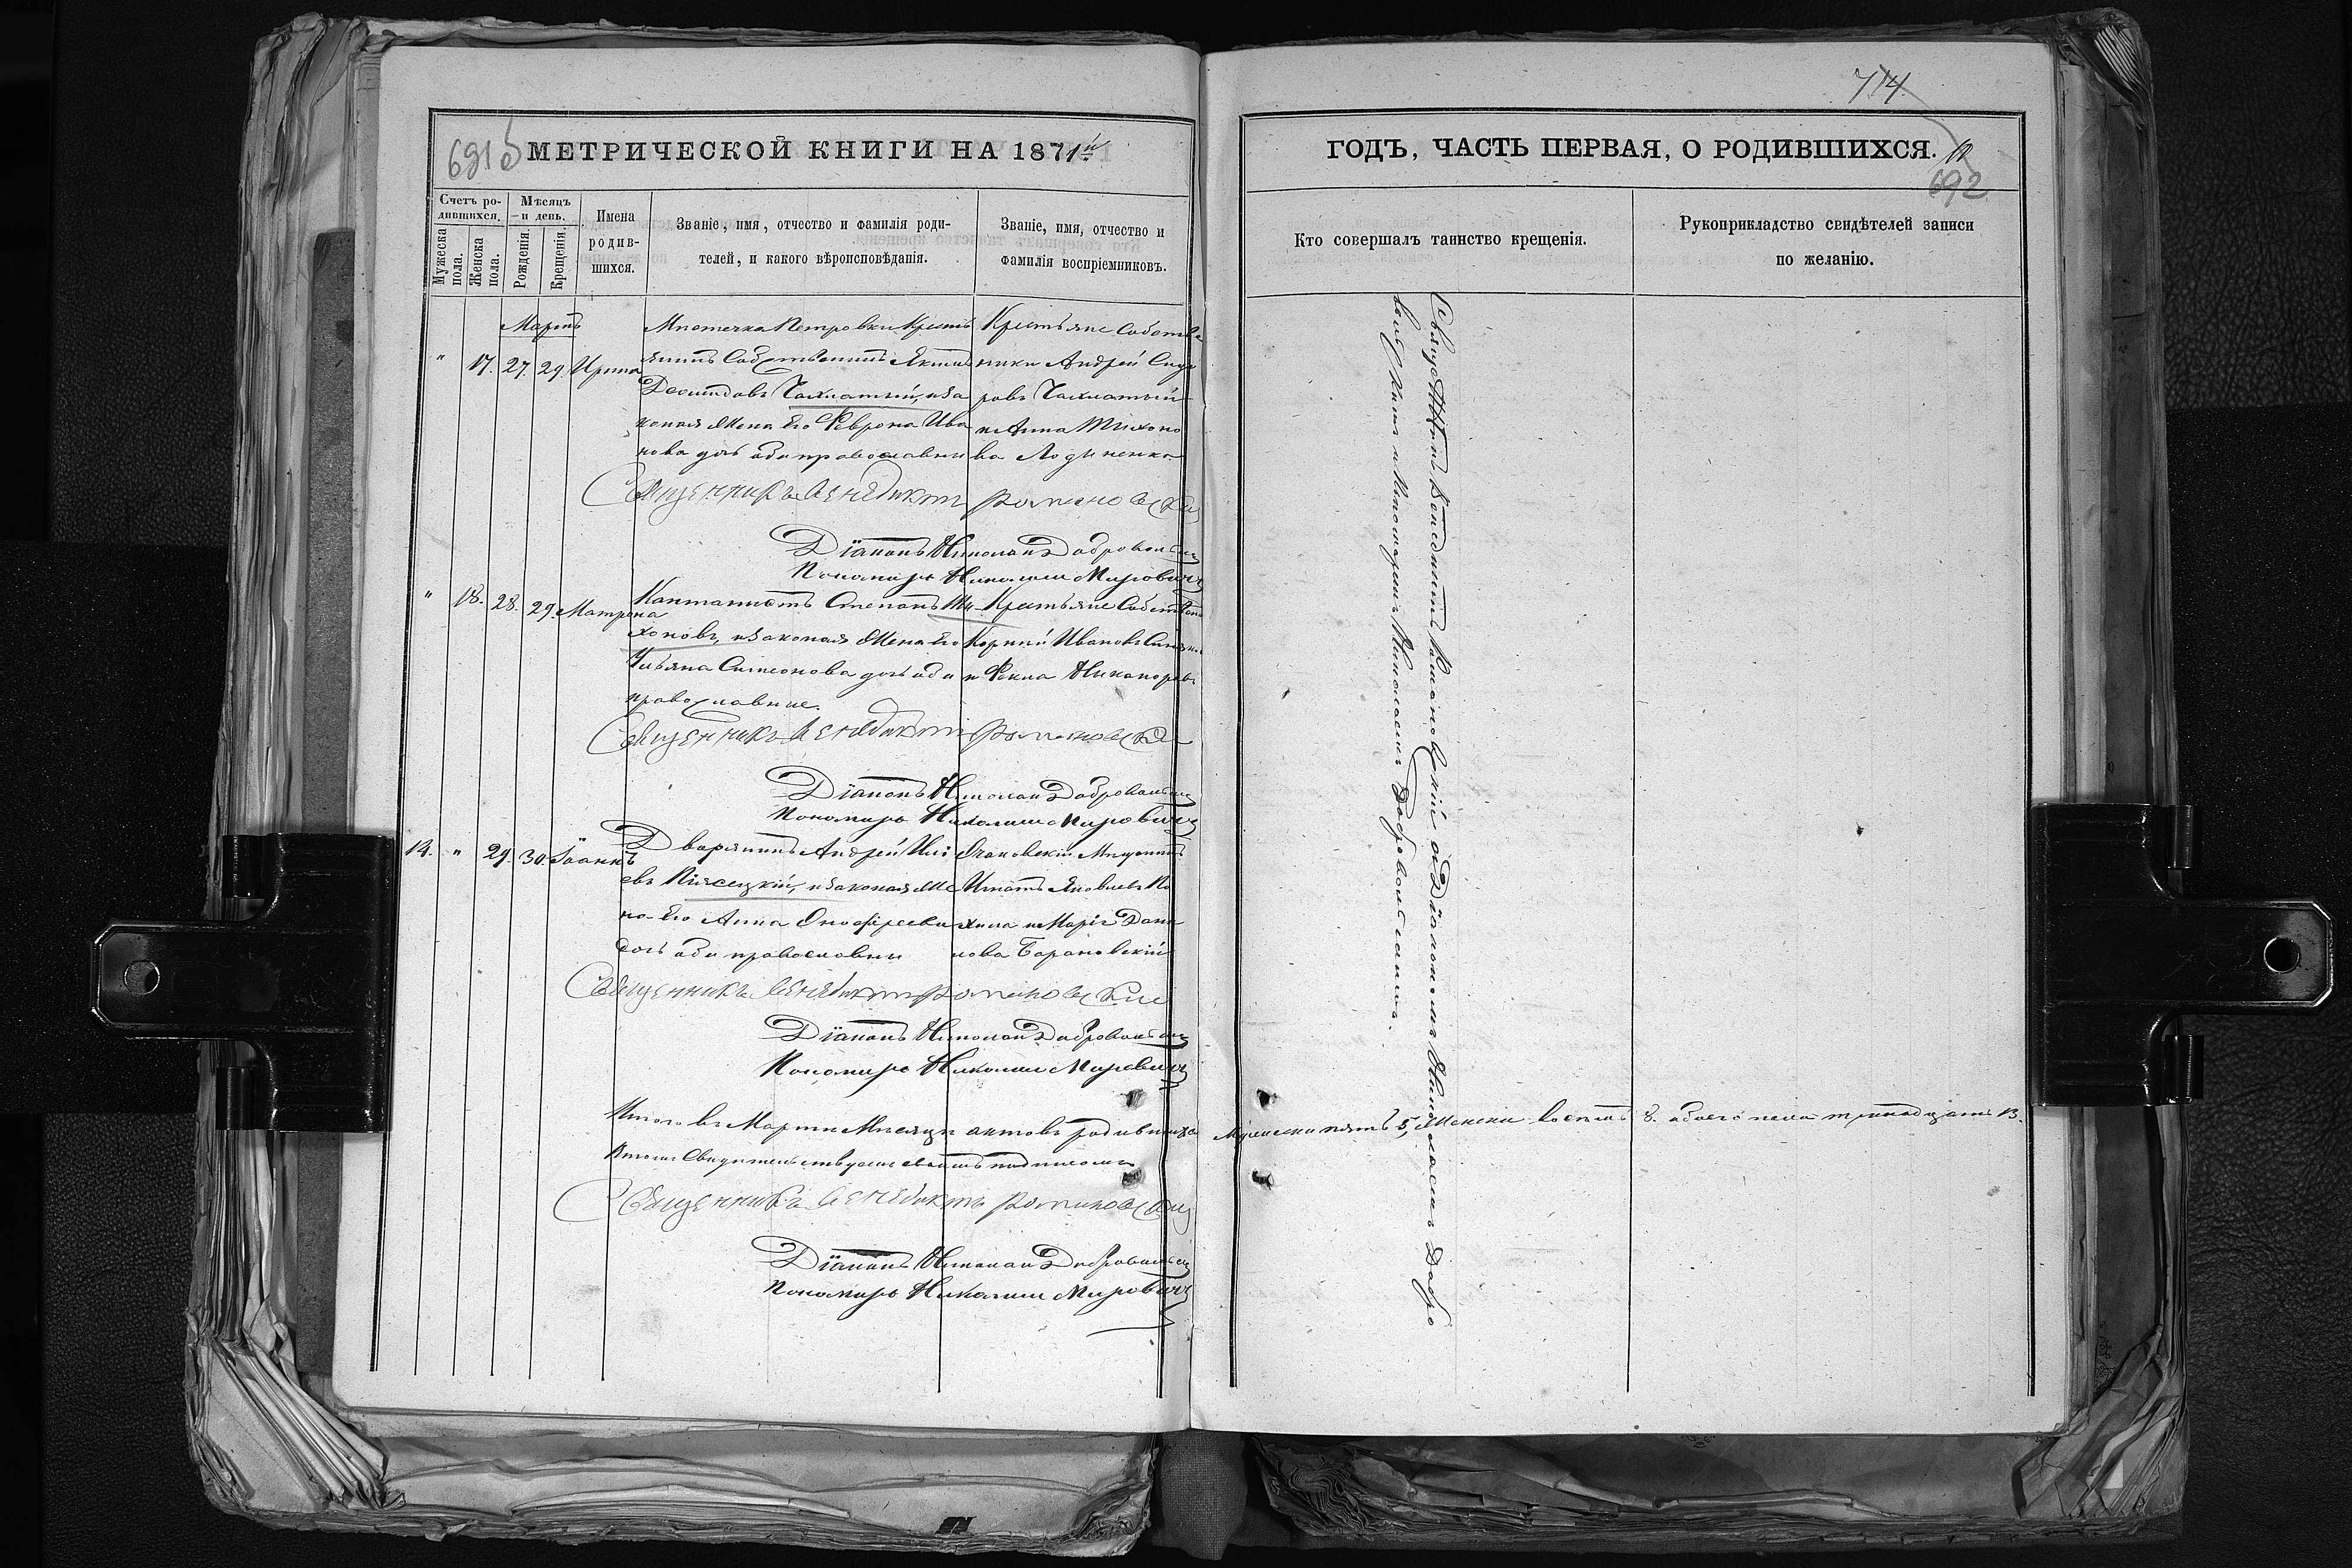 691 б
МЕТРИЧЕСКОЙ КНИГИ НА 1871й
Счетъ ро-
дившихся.
Мужеска
пола.
Женска
пола.
Мѣсяцъ
и день.
Рожденія.
Крещенія.
Имена
родив-
шихся.
Званіе, имя, отчество и фамилія роди-
телей, и какого вѣроисповѣданія.
Званіе, имя, отчество и
фамилія воспріемниковъ.
Мартъ
" 17. 27. 29. Ирина
Мѣстечка Петровки Кресть
янинъ Собственникъ
Чахлатый, и за
конная Жена Его Феврона Ива
нова дочь оба православны
Крестьяне Собстве
ники Андрей Сидо
ровъ Чахлатый
и Анна Тихоно
ва
Священникъ Венедиктъ Романовскій
Діаконъ Николай Добровольскій
Пономарь Николай Мировичъ
" 18. 28. 29. Матрона
Кантанистъ Степанъ Ти
хоновъ, и законная Жена Его
Ульяна Симеонова дочь оба
православные.
Крестьяне Собствен
Корній Ивановъ
и Фекла Никаноровъ
Священникъ Венедиктъ Романовскій
Діаконъ Николай Добровольскій
Пономарь Николай Мировичъ
14. " 29. 30. Іоаннъ
Дворянинъ Андрей Иллі
евъ Пясецкій, и законная Же
на Его Анна Онофріева
дочь оба православны
Очаковскій Мещанинъ
Игнатъ Яковлевъ
и Марія Дани
лова Барановскій
Священникъ Венедиктъ Романовскій
Діаконъ Николай Добровольскій
Пономарь Николай Мировичъ
Итого въ Мартѣ Мѣсяцѣ актовъ родившихся
Въ томъ Свидетельствуемъ своимъ подписомъ
Священникъ Венедиктъ Романовскій
Діаконъ Николай Добровольскій
Пономарь Николай Мировичъ
714
ГОДЪ, ЧАСТЬ ПЕРВАЯ, О РОДИВШИХСЯ.
692
Кто совершалъ таинство крещенія.
Рукоприкладство свидѣтелей записи
по желанію.
Священникъ Венедиктъ Романовскій съ Діакономъ Николаемъ Добро
вольскимъ и Пономаремъ Николаемъ
Мужеска пять 5, Женска восемь 8. обоего пола тринадцать 13.